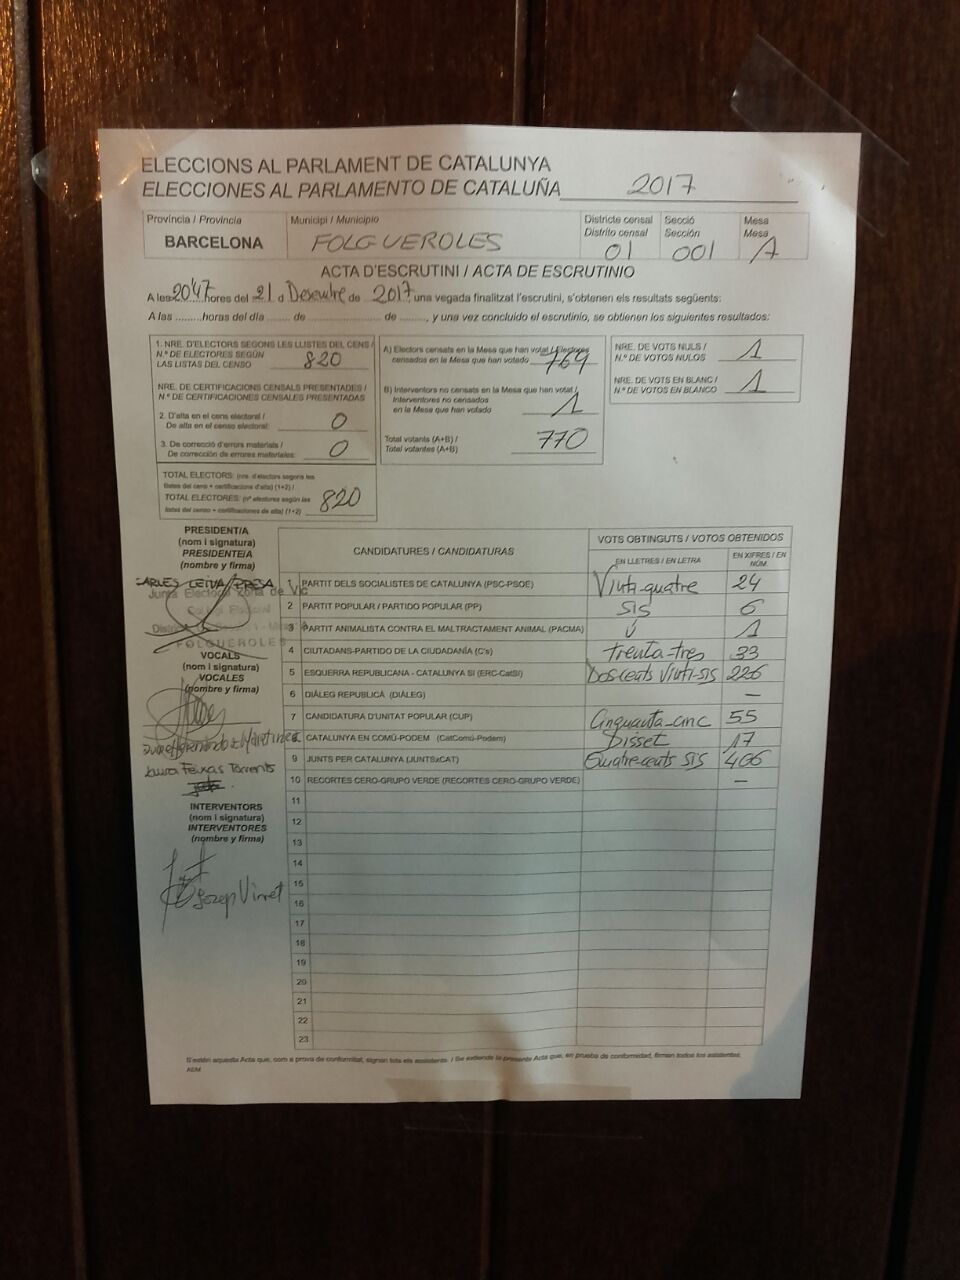 ELECCIONS AL PARLAMENT DE CATALUNYA
ELECCIONES AL PARLAMENTO DE CATALUÑA 2017
Província / Provincia
BARCELONA
Municipi / Municipio
FOLGUEROLES
Districte censal
Distrito censal
01
Secció
Sección
001
Mesa
Mesa
A
ACTA D'ESCRUTINI / ACTA DE ESCRUTINIO
A les 20'47 hores del 21 d Desembre de 2017 una vegada finalitzat l'escrutini, s'obtenen els resultats següents:
A las ......... horas del día ....... de .................. de ........, y una vez concluido el escrutinio, se obtienen los siguientes resultados:
1. NRE. D'ELECTORS SEGONS LES LLISTES DEL CENS /
N.º DE ELECTORES SEGÚN
LAS LISTAS DEL CENSO 820
NRE. DE CERTIFICACIONS CENSALS PRESENTADES /
N.º DE CERTIFICACIONES CENSALES PRESENTADAS
2. D'alta en el cens electoral /
De alta en el censo electoral: 0
3. De correcció d'errors materials /
De corrección de errores materiales: 0
TOTAL ELECTORS: (nre. d'electors segons les
llistes del cens + certificacions d'alta) (1+2) /
TOTAL ELECTORES: (nº electores según las
listas del censo + certificaciones de alta) (1+2) 820
A) Electors censats en la Mesa que han votat / Electores
censados en la Mesa que han votado 769
B) Interventors no censats en la Mesa que han votat /
Interventores no censados
en la Mesa que han votado 1
Total votants (A+B) /
Total votantes (A+B) 770
NRE. DE VOTS NULS /
N.º DE VOTOS NULOS 1
NRE. DE VOTS EN BLANC /
N.º DE VOTOS EN BLANCO 1
PRESIDENT/A
(nom i signatura)
PRESIDENTE/A
(nombre y firma)
CARLES LEIVA PRESA
Junta Electoral Zona de Vic
FOLGUEROLES
VOCALS
(nom i signatura)
VOCALES
(nombre y firma)
Laura Feixas Torrents
INTERVENTORS
(nom i signatura)
INTERVENTORES
(nombre y firma)
Josep Vinret
CANDIDATURES / CANDIDATURAS
VOTS OBTINGUTS / VOTOS OBTENIDOS
EN LLETRES / EN LETRA
EN XIFRES / EN NÚM.
1 PARTIT DELS SOCIALISTES DE CATALUNYA (PSC-PSOE) Vinti-quatre 24
2 PARTIT POPULAR / PARTIDO POPULAR (PP) SIS 6
3 PARTIT ANIMALISTA CONTRA EL MALTRACTAMENT ANIMAL (PACMA) ú 1
4 CIUTADANS-PARTIDO DE LA CIUDADANÍA (C's) trenta-tres 33
5 ESQUERRA REPUBLICANA - CATALUNYA SÍ (ERC-CatSí) Dos cents Vinti-sis 226
6 DIÀLEG REPUBLICÀ (DIÀLEG) —
7 CANDIDATURA D'UNITAT POPULAR (CUP) Cinquanta-cinc 55
8 CATALUNYA EN COMÚ-PODEM (CatComú-Podem) Disset 17
9 JUNTS PER CATALUNYA (JUNTSxCAT) Quatre-cents sis 406
10 RECORTES CERO-GRUPO VERDE (RECORTES CERO-GRUPO VERDE) —
11
12
13
14
15
16
17
18
19
20
21
22
23
S'estén aquesta Acta que, com a prova de conformitat, signen tots els assistents. / Se extiende la presente Acta que, en prueba de conformidad, firman todos los asistentes.